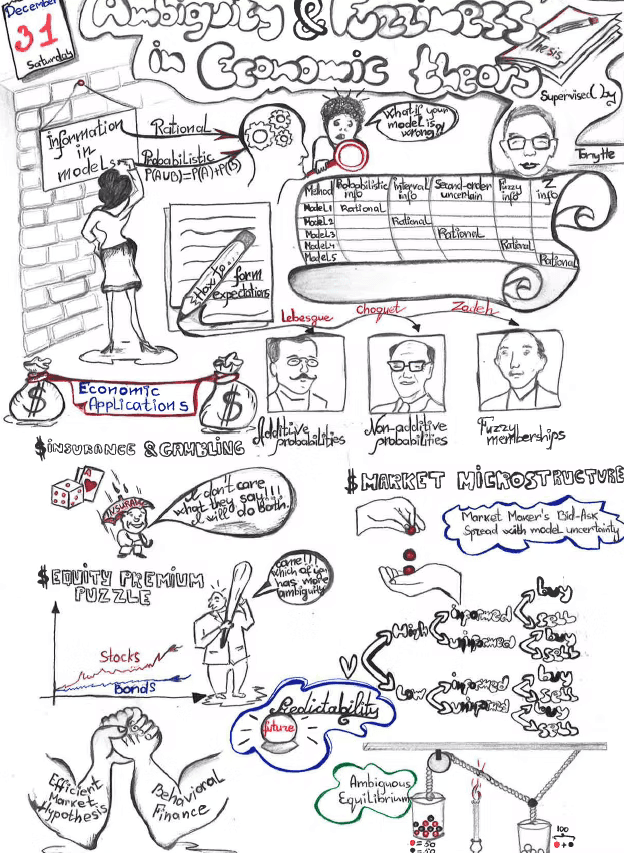 December
31
Saturday
Ambiguity & Fuzziness
in Economic theory
Thesis
Supervised by
Information
in
models
Rational
Probabilistic
P(AUB)=P(A)+P(B)
What if your
model is
wrong?
Method Probabilistic info Interval info Second-order uncertain Fuzzy info Z info
Model1 Rational
Model2 Rational
Model3 Rational
Model4 Rational
Model5 Rational
How to...
form
expectations
Lebesgue
Choquet
Zadeh
Additive
probabilities
Non-additive
probabilities
Fuzzy
memberships
$ $
Economic
Applications
$INSURANCE & GAMBLING
A
I don't care
what they say!!!
I will do both.
$MARKET MICROSTRUCTURE
Market Maker's Bid-Ask
Spread with model uncertainty
$EQUITY PREMIUM
PUZZLE
come!!!
which of you
has more
ambiguity
Stocks
Bonds
High
informed
uninformed
buy
sell
buy
sell
Low
informed
uninformed
buy
sell
buy
sell
Predictability
future
Efficient
Market
Hypothesis
Behavioral
Finance
Ambiguous
Equilibrium
= 50
= 50
100